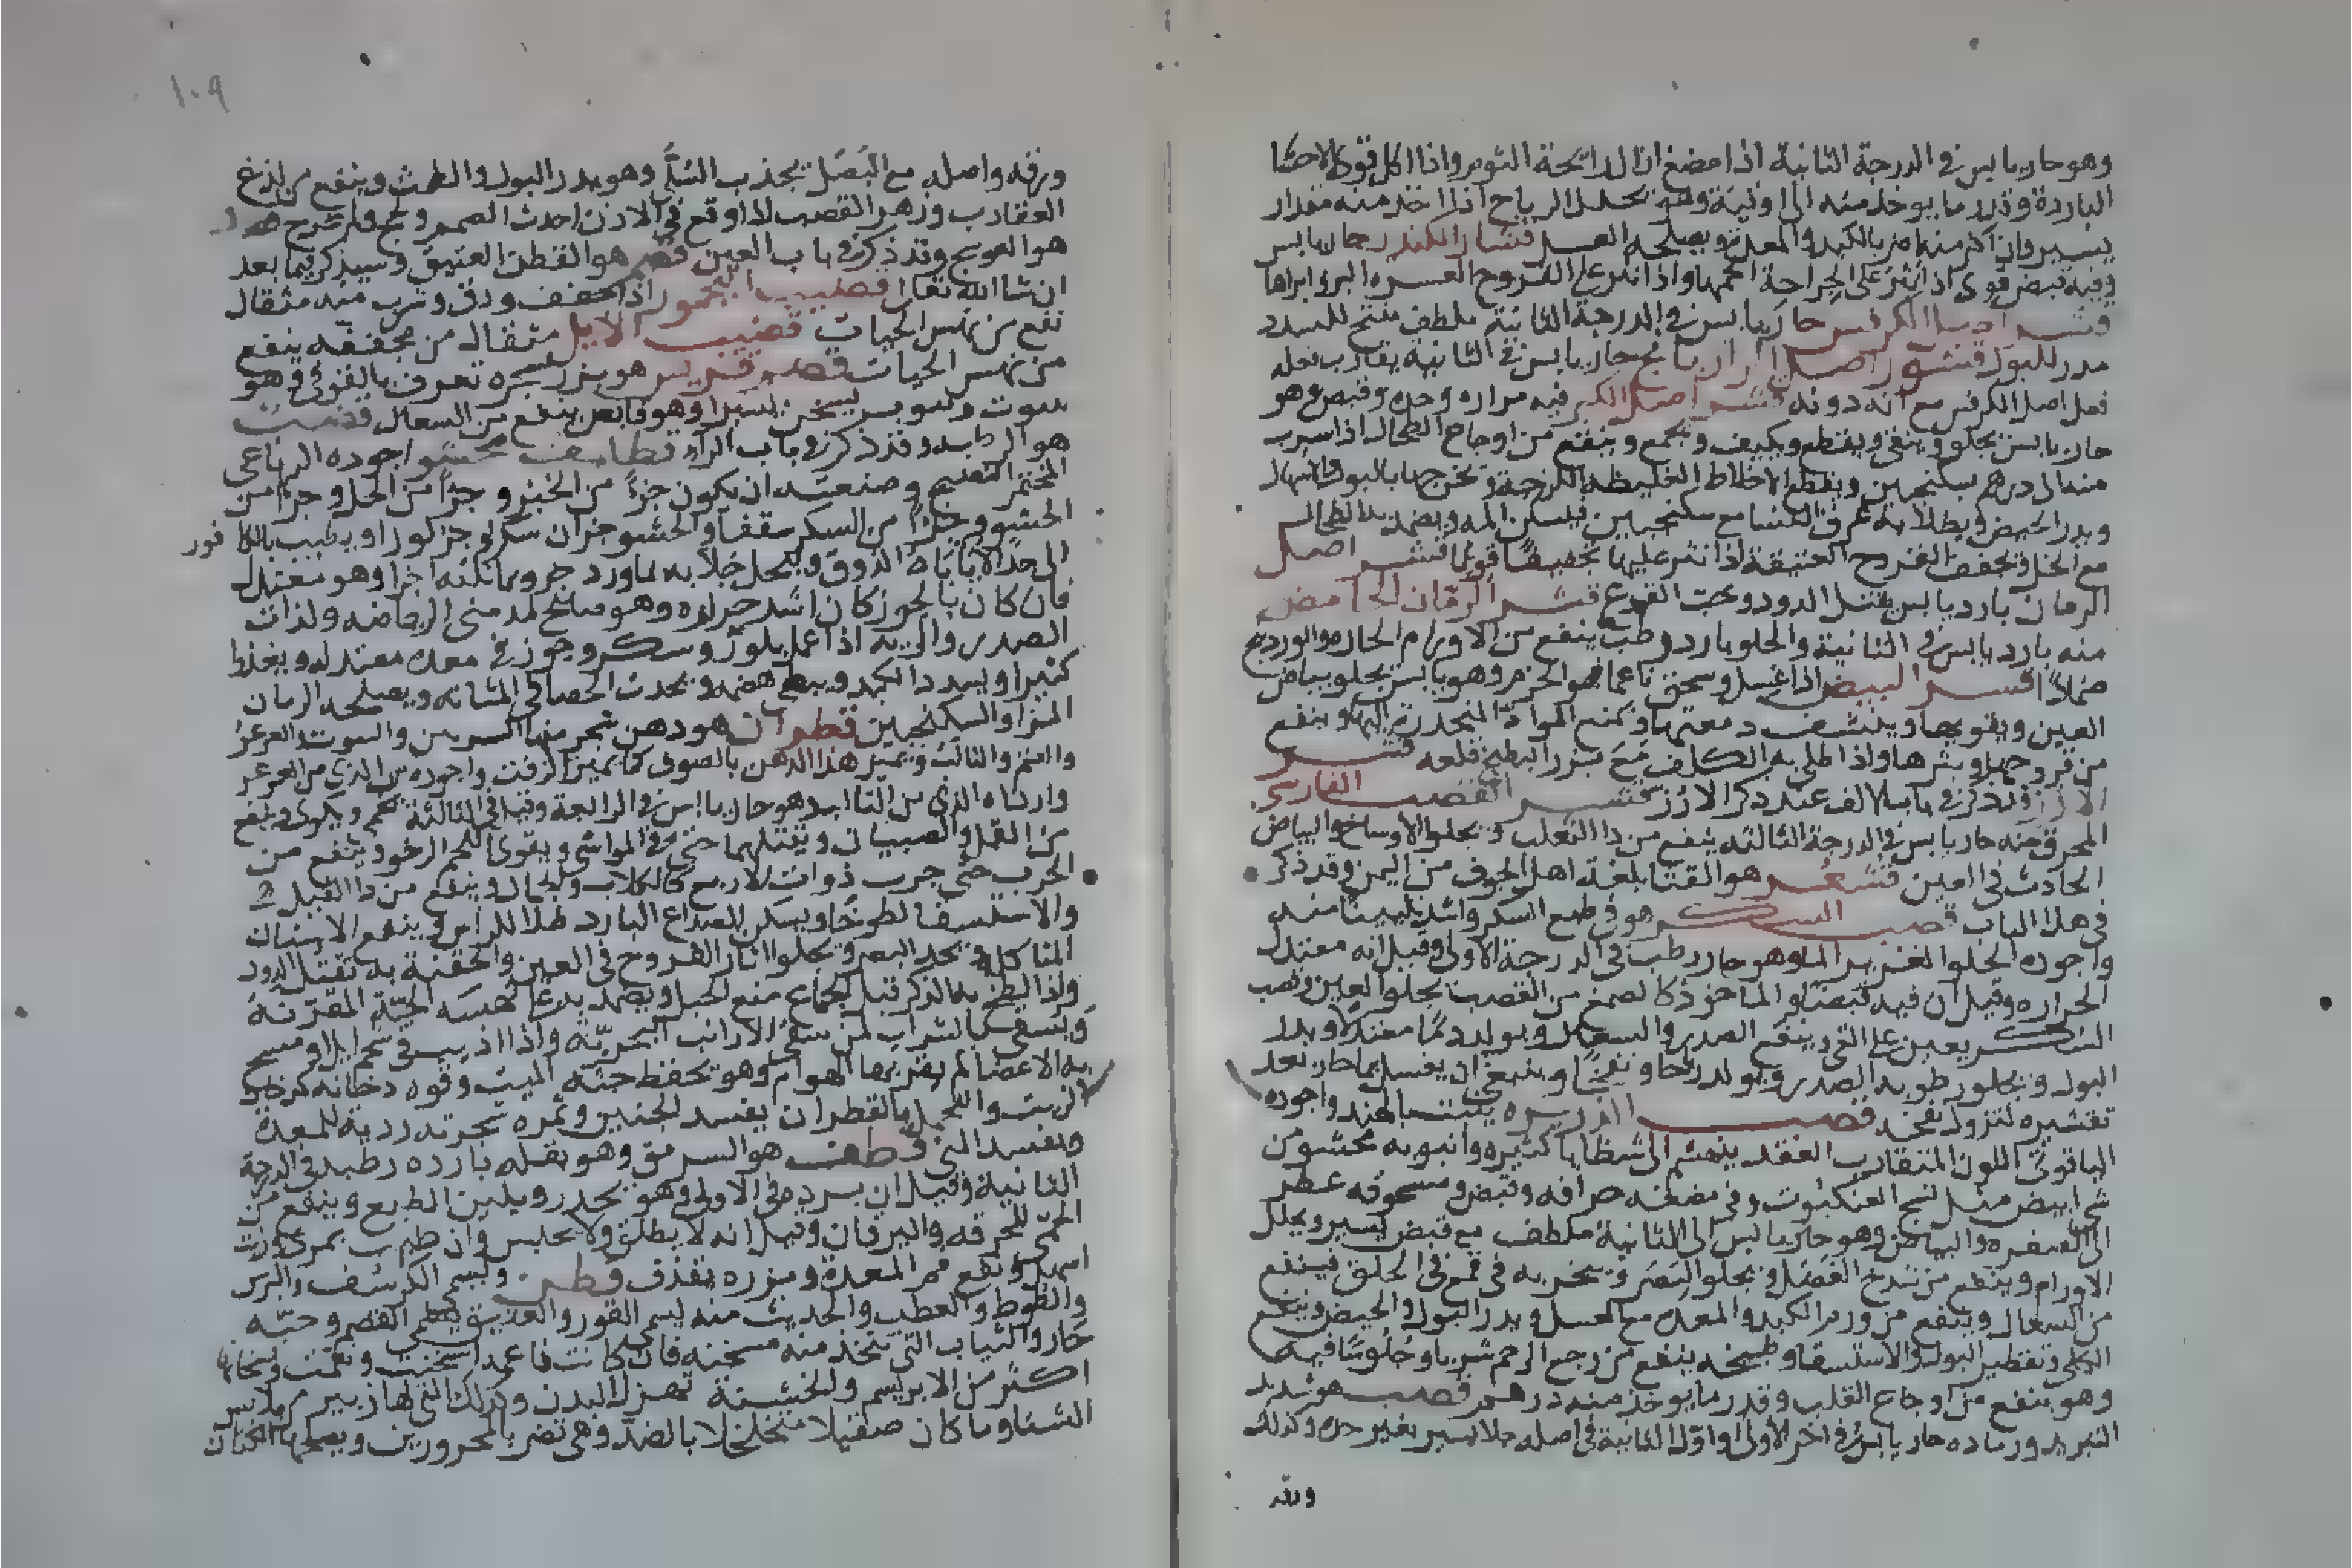 وهو حار يابس في الدرجة الثانية اذا مضغ ازال رائحة الثوم واذا اكل قوى الاحشا
الباردة وقدر ما يوخذ منه الى اوقية وهو يحلل الرياح اذا اخذ منه مقدار
يسير وان اكثر منه اضر بالكبد والمعدة ويصلحه العسل قشار الكندر حار يابس
وفيه قبض قوى اذا نثر على الجراحة الحمها واذا نثر على القروح العسره البرو ابراها
قشر اصل الكرفس حار يابس في الدرجة الثانية ملطف مفتح للسدد
مدر للبول قشور اصل الرازيانج حار يابس في الثانية يقارب فعله
فعل اصل الكرفس مع انه دونه قشر اصل الكبر فيه مراره وحده وقبض وهو
حار يابس يجلو وينقي ويقطع ويكيف ويجمع وينفع من اوجاع الطحال اذا شرب
منه درهم بسكنجبين ويقطع الاخلاط الغليظه اللزجة وتخرجها بالبول والاسهال
ويدر الحيض ويطلا به عرق النسا مع سكنجبين فيسكن المه ويضمد به الطحال
مع الخل ويجفف القروح العتيقة اذا نثر عليها تجفيفًا قويا قشر اصل
الرمان بارد يابس يقتل الدود وحب القرع قشر الرمان الحامض
منه بارد يابس في الثانية والحلو بارد رطب ينفع من الاورام الحاره والوردينج
ضمادًا قشر البيض اذا غسل وسحق ناعما فهو الحزم وهو يابس يجلو بياض
العين ويقويها وينشف دمعتها ويمنع المواد المنحدرة اليها وينفع
من قروحها وبثرها واذا طلي به الكلف مع بزر البطيخ قلعه قشر
الارز قد ذكر في باب الالف عند ذكر الارز قشر القصب الفارسي
المحرق منه حار يابس في الدرجة الثالثه ينفع من داء الثعلب ويجلو الاوساخ والبياض
الحادث في العين قشعر هو القثا بلغة اهل الجوف من اليمن وقد ذكر
في هذا الباب قصب السكر هو في طبع السكر واشد تليينًا منه
واجوده الحلو الغزير الماء وهو حار رطب في الدرجة الاولى وقيل انه معتدل
الحراره وقيل ان فيه قبضًا والماخوذ كالصمغ من القصب يجلو العين وقصب
السكر يعين على القي وينفع الصدر والسعال ويولد دمًا معتدلا ويدر
البول ويجلو رطوبة الصدر ويولد رياحا ونفخًا وينبغي ان يغسل بماء حار بعد
تقشيره لتزول نفخته قصب الذريره ينبت بالهند واجوده
الياقوتي اللون المتقارب العقد ينهشم الى شظايا كثيره وانبوبه محشو من
شي ابيض مثل نسج العنكبوت وفي مضغه حرافه وقبض ومسحوقه عطر
الى الصفره والبياض وهو حار يابس الى الثانية ملطف مع قبض يسير ويحلل
الاورام وينفع من شدخ العضل ويجلو البصر ويتبخر به في قمع في الحلق فينفع
من السعال وينفع من ورم الكبد والمعدة مع العسل ويدر البول والحيض وينفع
الكلى وتقطير البول والاستسقا وطبيخه ينفع من وجع الرحم شربا وجلوسًا فيه
وهو ينفع من اوجاع القلب وقدر ما يوخذ منه درهم قصب هو شديد
التبريد ورماده حار يابس في اخر الاولى واول الثانية في اصله جلا يسير بغير حدة وكذلك
ورقه
١٠٩
ورقه واصله مع البصل يجذب السلَّى وهو يدر البول والطمث وينفع من لدغ
العقارب وزهر القصب اذا وقع في الاذن احدث الصمم ولج فلم يخرج
هو العوسج وقد ذكر في باب العين قضم هو القطن العتيق وسيذكر فيما بعد
ان شا الله تعالى قضيب اذا جفف ودق وشرب منه مثقال
نفع من نهش الحيات قضيب الايل مثقال من مجففه ينفع
من نهش الحيات قضم قريش هو بزر شجره تعرف بالفوفي هو
يسخن يسيرا وهو قابض ينفع من السعال
هو الرطبه وقد ذكر في باب الراء قطايف محشو اجوده الرباعي
المختمر النضيج وصنعته ان يكون جزءً من الخبز وجزءًا من الحل وجزا من
الحشو وجزءًا من السكر والحشو جزان سكر وجز لوز ويطيب بالكافور
الى حد لا ياباه الذوق ويحل جلابه بماورد وهو معتدل
فان كان بالجوز كان اشد حراره وهو صالح لمدمني الرياضه ولذات
الصدر والريه اذا عمل بلوز وسكر وجوز في معده معتدله ويغذوا
كثيرا ويسدد الكبد ويبطي هضمه ويحدث الحصا في المثانه ويصلحه الرمان
المز او السكنجبين قطران هو دهن شجر منها السربين والتوت والعرعر
والعتم والتالب ويميز هذا الدهن بالصوف كما يميز الزفت واجوده من الذي من العرعر
وارداه الذي من التالب وهو حار يابس في الرابعة وقيل في الثالثة
من القمل والصيبان ويقتلهما حتى في المواشي ويقوى اللحم الرخو وينفع من
الجرب حتى جرب ذوات الاربع كالكلاب والجمال وينفع من داء الفيل
والاستسقا لطوخا ويسكن الصداع البارد طلا للراس وينفع الاسنان
المتاكله ويحد البصر ويجلوا اثار القروح في العين والحقنة به تقتل الدود
واذا لطخ به الذكر قبل الجماع منع الحبل ويضمد به على نهسه الحيّة المقرّنة
ويسقى بالشراب لمن سقى الارانب البحريّة واذا اذيب في شحم ايل ومسح
به الاعضا لم يقربها الهوام وهو يحفظ جثة الميت وقوه دخانه كدخان
الزيت والتحمل بالقطران يفسد الجنين وثمره شجرته ردية للمعدة
ويفسد المني قطف هو السرمق وهو بقله بارده رطبه في الدرجة
الثانية وقيل ان برده في الاولى وهو يحدر ويلين الطبع وينفع من
الحمى المحرقه واليرقان وقيل انه لا يطلق ولا يحبس وان طبخ
اسهل ونفع فم المعدة وبزره يقذف قطن ويسمى الكرسف والبرس
والطوط والعطب والحديث منه يسمى القور والعتيق يسمى القضم وحبّه
حار والثياب التي تتخذ منه مسخنه فان كانت ناعمه اسخنت ونعمت واسخانها
اكثر من الابريسم والخشنة تهزل البدن وكذلك التي لها زبير من ملابس
الشتا وما كان صقيلا متخلخلا بالضد وهي تضر بالمحرورين ويصلحها الكتان